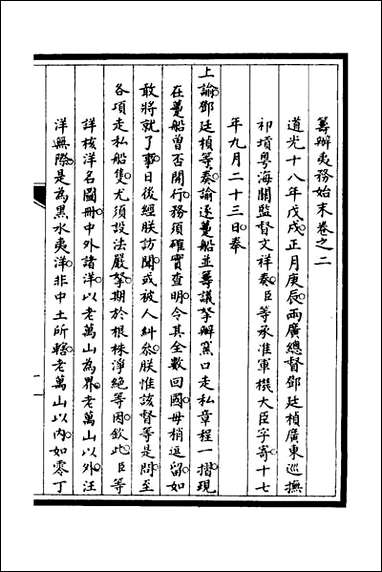 籌辦夷務始末卷之二
道光十八年戊戌正月庚辰兩廣總督鄧廷楨廣東巡撫
祁𡎴粵海關監督文祥奏臣等承准軍機大臣字寄十七
年九月二十三日奉
上諭鄧廷楨等奏諭逐躉船並籌議拏辦窯口走私章程一摺現
在躉船曾否開行務須確實查明令其全數回國毋稍逗留如
敢將就了事日後經朕訪聞或被人糾參朕惟該督等是問至
各項走私船隻尤須設法嚴拏期於根株淨絕等因欽此臣等
詳核洋名圖冊中外諸洋以老萬山為界老萬山以外汪
洋無際是為黑水夷洋非中土所轄老萬山以內如零丁
一